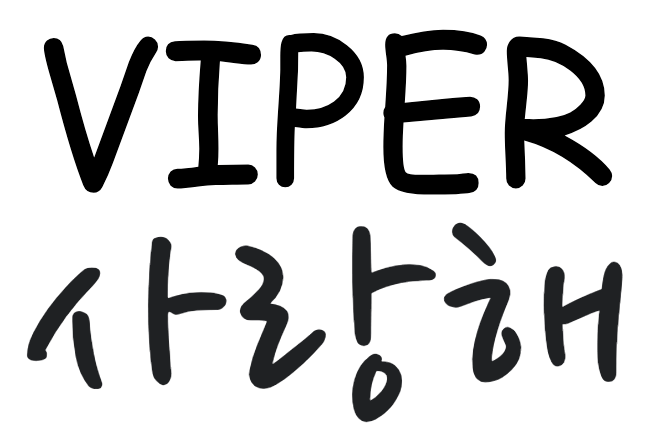 VIPER
사랑해